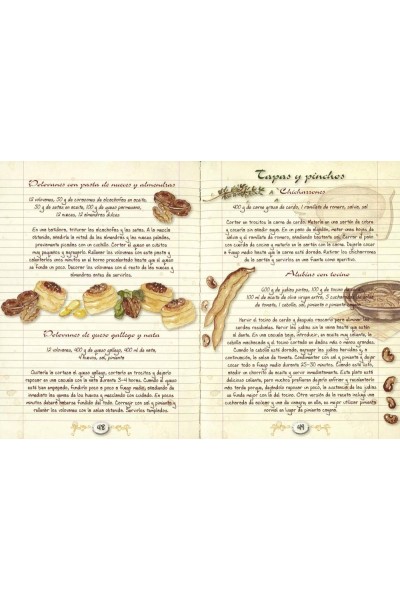 Volovanes con pasta de nueces y almendras
12 volovanes, 30 g de corazones de alcachofas en aceite,
30 g de setas en aceite, 100 g de queso parmesano,
12 nueces, 12 almendras dulces
En una batidora, triturar las alcachofas y las setas. A la mezcla
obtenida, añadirle la mitad de las almendras y las nueces peladas,
previamente picadas con un cuchillo. Cortar el queso en cubitos
muy pequeños y agregarlo. Rellenar los volovanes con esta pasta y
calentarlos unos minutos en el horno precalentado hasta que el queso
se funda un poco. Decorar los volovanes con el resto de las nueces
y almendras antes de servirlos.
Volovanes de queso gallego y nata
12 volovanes, 400 g de queso gallego, 400 ml de nata,
sal, pimienta
Quitarle la corteza al queso gallego, cortarlo a trocitos y dejarlo
reposar en una cazuela con la nata durante 3-4 horas. Cuando el queso
esté bien empapado, fundirlo poco a poco a fuego medio, añadiendo de
inmediato las yemas de los huevos y mezclando con cuidado. En pocos
minutos deberá haberse fundido del todo. Corregir con sal y pimienta y
rellenar los volovanes con la salsa obtenida. Servirlos templados.
48
Tapas y pinchos
Chicharrones
400 g de carne grasa de cerdo, 1 ramillete de romero, salvia, sal
Cortar a trocitos la carne de cerdo. Meterla en una sartén de cobre
y cocerla sin añadir nada. En un paño de algodón, meter unas hojas
de salvia y el ramillete de romero, añadiendo bastante sal. Cerrar el paño
con cuerda de cocina y meterlo en la sartén con la carne. Dejarla cocer
a fuego medio hasta que la carne esté dorada. Retirar los chicharrones
de la sartén y servirlos en una fuente como aperitivo.
Alubias con tocino
600 g de judías pintas, 100 g de tocino de cerdo,
100 ml de aceite de oliva virgen extra, 3 cucharadas de
de tomate, 1 cebolla, sal, pimiento o pimienta
Hervir el tocino de cerdo durante y después rascarlo para eliminar las
cerdas residuales. Hervir las judías sin la vaina hasta que estén
al dente. En una cazuela baja, introducir el aceite, la cebolla
hecha machacada y el tocino cortado en dados más o menos grandes.
Cuando la cebolla esté dorada, agregar las judías hervidas y, a
continuación, la salsa de tomate. Condimentar con sal y pimienta y dejar
cocer todo a fuego medio durante 25-30 minutos. Cuando esté listo,
añadir un chorrito de aceite y servir inmediatamente. Este plato está
delicioso caliente, pero muchos prefieren dejarlo enfriar y recalentarlo
más tarde porque, dejándolo reposar un poco, la sustancia de las judías
se funde mejor con la del tocino. Otra versión de la receta incluye una
cucharada de azúcar y una de vinagre en ella, es mejor utilizar pimienta
normal en lugar de pimienta cayena.
49